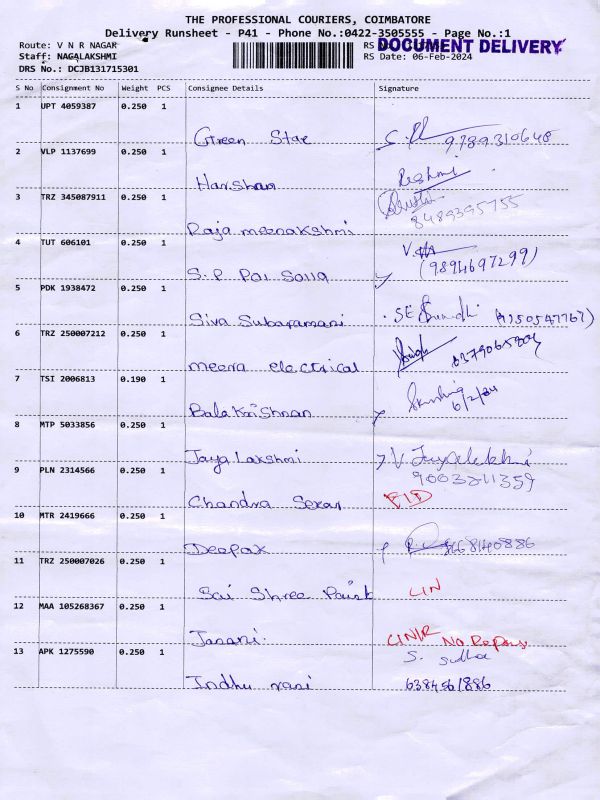 THE PROFESSIONAL COURIERS, COIMBATORE
Delivery Runsheet - P41 - Phone No.:0422-3505555 - Page No.:1
Route: V N R NAGAR RS No DOCUMENT DELIVERY
Staff: NAGALAKSHMI RS Date: 06-Feb-2024
DRS No.: DCJB131715301
S No Consignment No Weight PCS Consignee Details Signature
1 UPT 4059387 0.250 1
Green Star 9789310648
2 VLP 1137699 0.250 1
Harshan Reshmi
3 TRZ 345087911 0.250 1
Raja meenakshmi 8489395755
4 TUT 606101 0.250 1
S.P (9894697299)
5 PDK 1938472 0.250 1
Siva Subaramani
6 TRZ 250007212 0.250 1
meera electrical
7 TSI 2006813 0.190 1
Balakrishnan 6/2/24
8 MTP 5033856 0.250 1
Jaya Lakshmi
9 PLN 2314566 0.250 1 9003211359
Chandra Sekar
10 MTR 2419666 0.250 1
Deepak
11 TRZ 250007026 0.250 1
Sai Shree
12 MAA 105268367 0.250 1
Janani
13 APK 1275590 0.250 1 S. Sudha
Indhu rani 6384561886